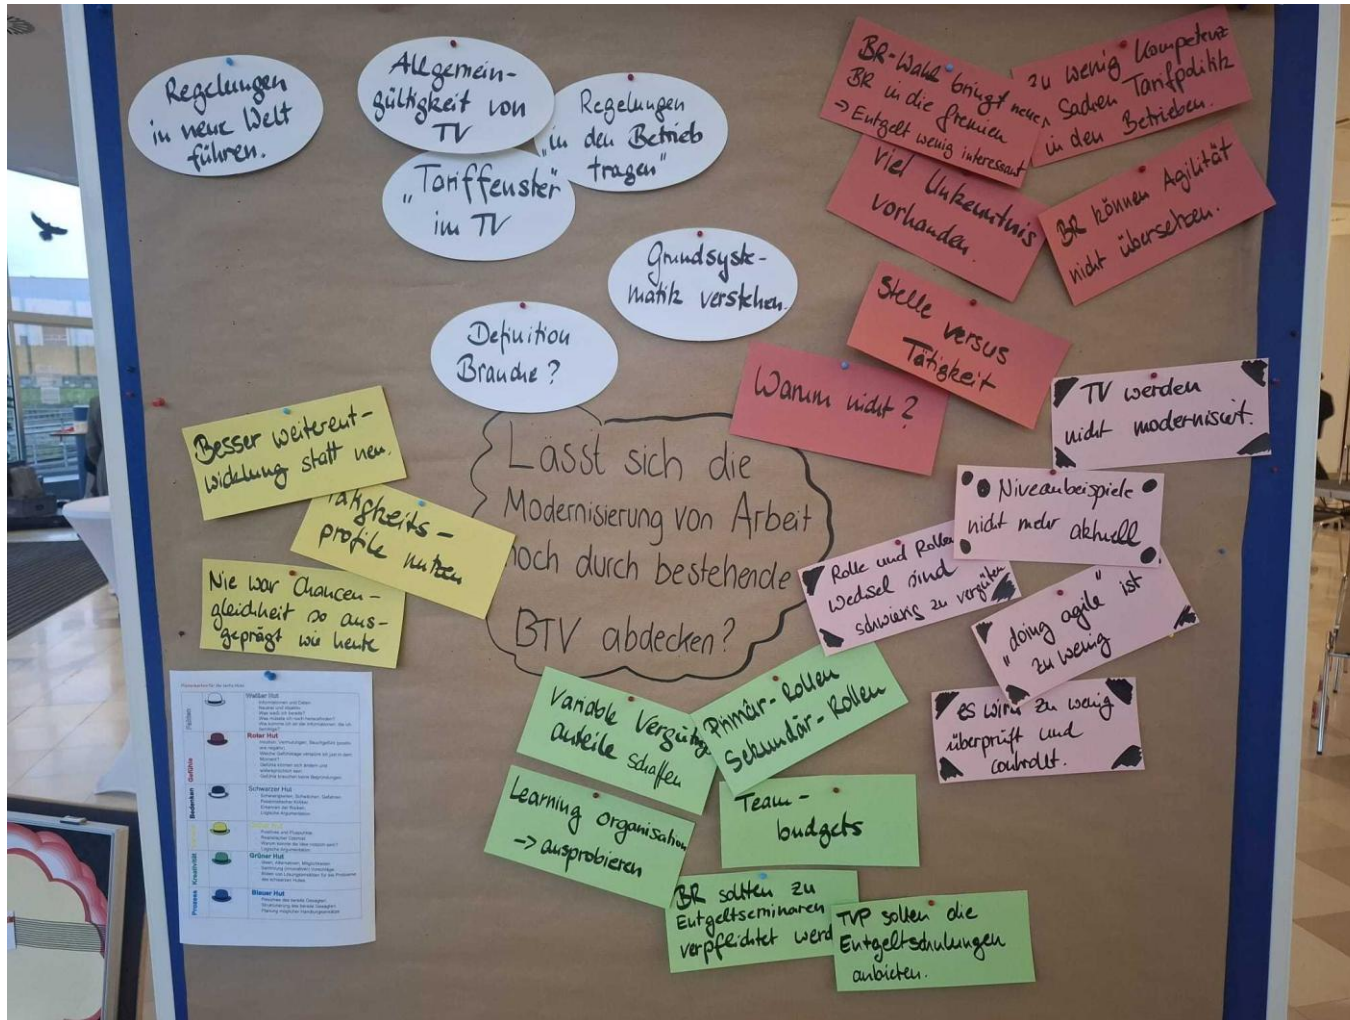 Regelungen
in neue Welt
führen.
Allgemein-
gültigkeit von
TV
Regelungen
"in den Betrieb
tragen"
"Tariffenster"
im TV
Grundsyste-
matik verstehen.
Definition
Branche?
BR-Wahl bringt neue
BR in die Gremien
-> Entgelt wenig interessant
zu wenig Kompetenz
Sachen Tarifpolitik
in den Betrieben.
Viel Unkenntnis
vorhanden.
BR können Agilität
nicht übersetzen.
Stelle versus
Tätigkeit
Warum nicht?
TV werden
nicht modernisiert.
Niveaubeispiele
nicht mehr aktuell
Rolle und Rollen
Wechsel sind
schwierig zu vergüten
"doing agile" ist
zu wenig
es wird zu wenig
überprüft und
controlt.
Besser weiterent-
wicklung statt neu.
Tätigkeits-
profile nutzen
Nie war Chancen-
gleichheit so aus-
geprägt wie heute
Lässt sich die
Modernisierung von Arbeit
noch durch bestehende
BTV abdecken?
Variable Vergütung
anteile schaffen
Primär-Rollen
Sekundär-Rollen
Learning Organisation
-> ausprobieren
Team-
budgets
BR sollten zu
Entgeltseminaren
verpflichtet werd
TVP sollen die
Entgeltschulungen
anbieten.
Fakten
Weißer Hut
Gefühle
Roter Hut
Bedenken
Schwarzer Hut
Kreativität
Grüner Hut
Prozess
Blauer Hut